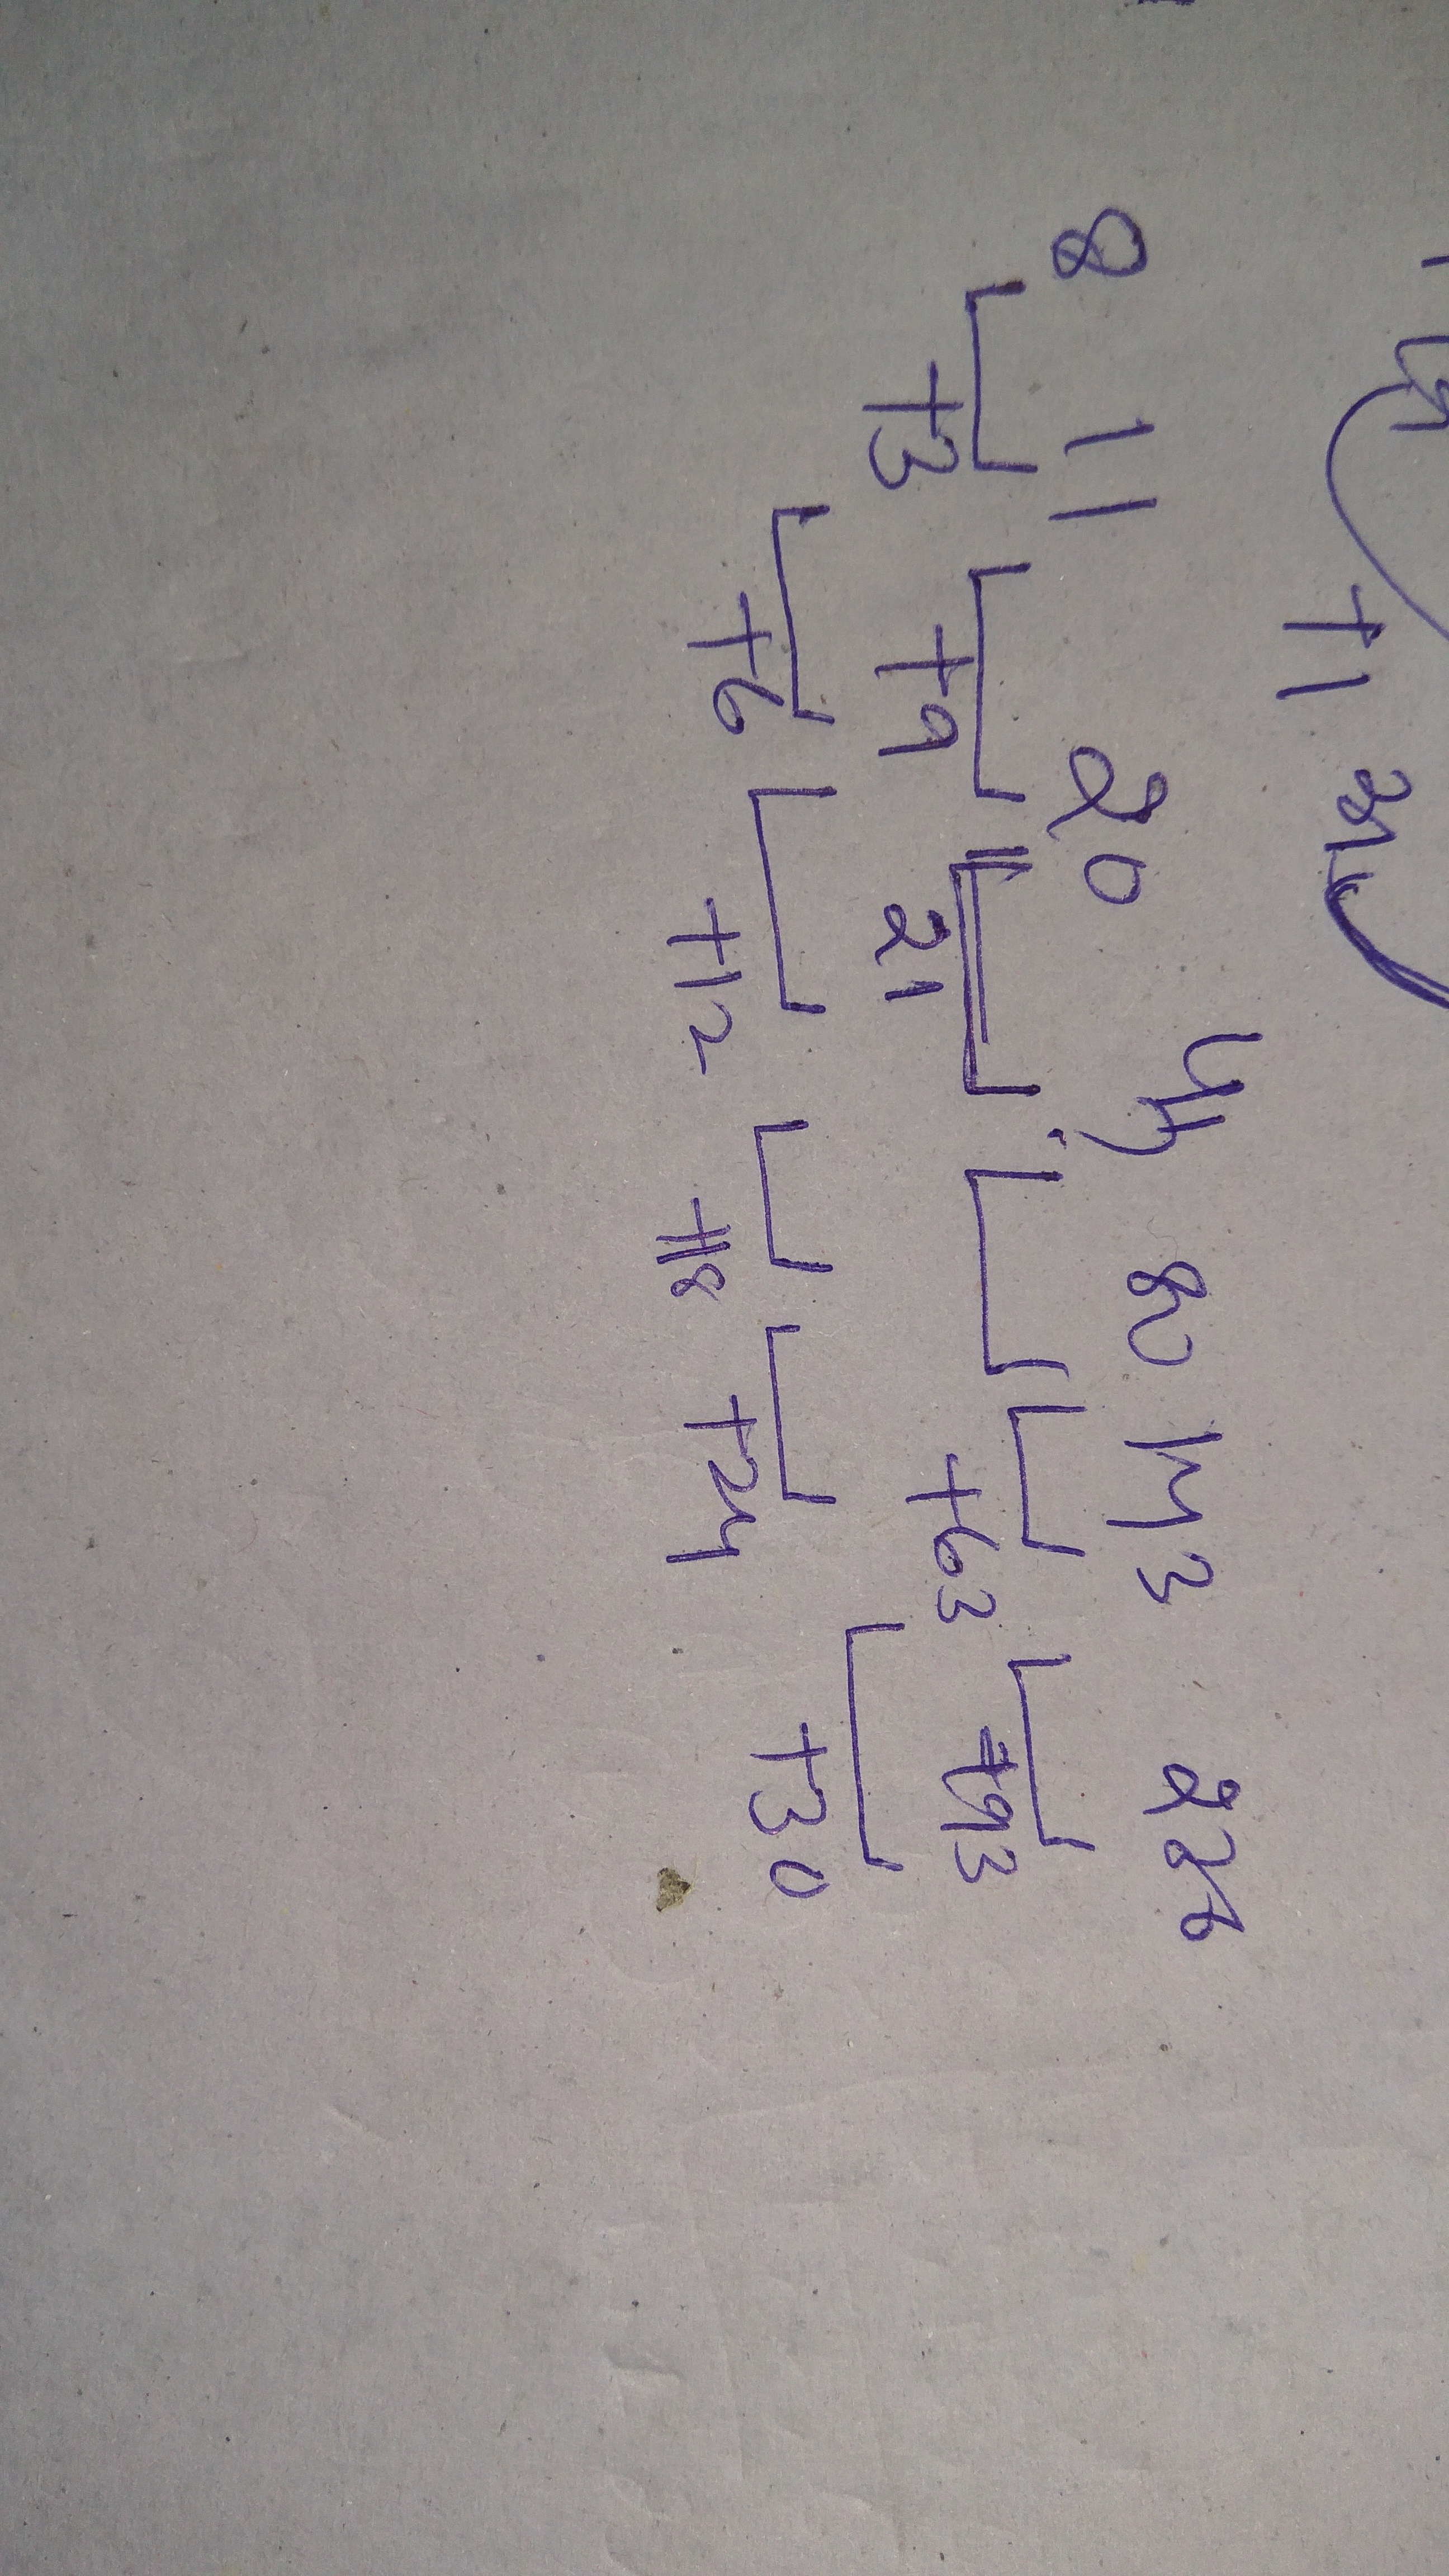 +1
8 11 20 80 143
+3 +9 21 +63 +93
+6 +12 +18 +24 +30